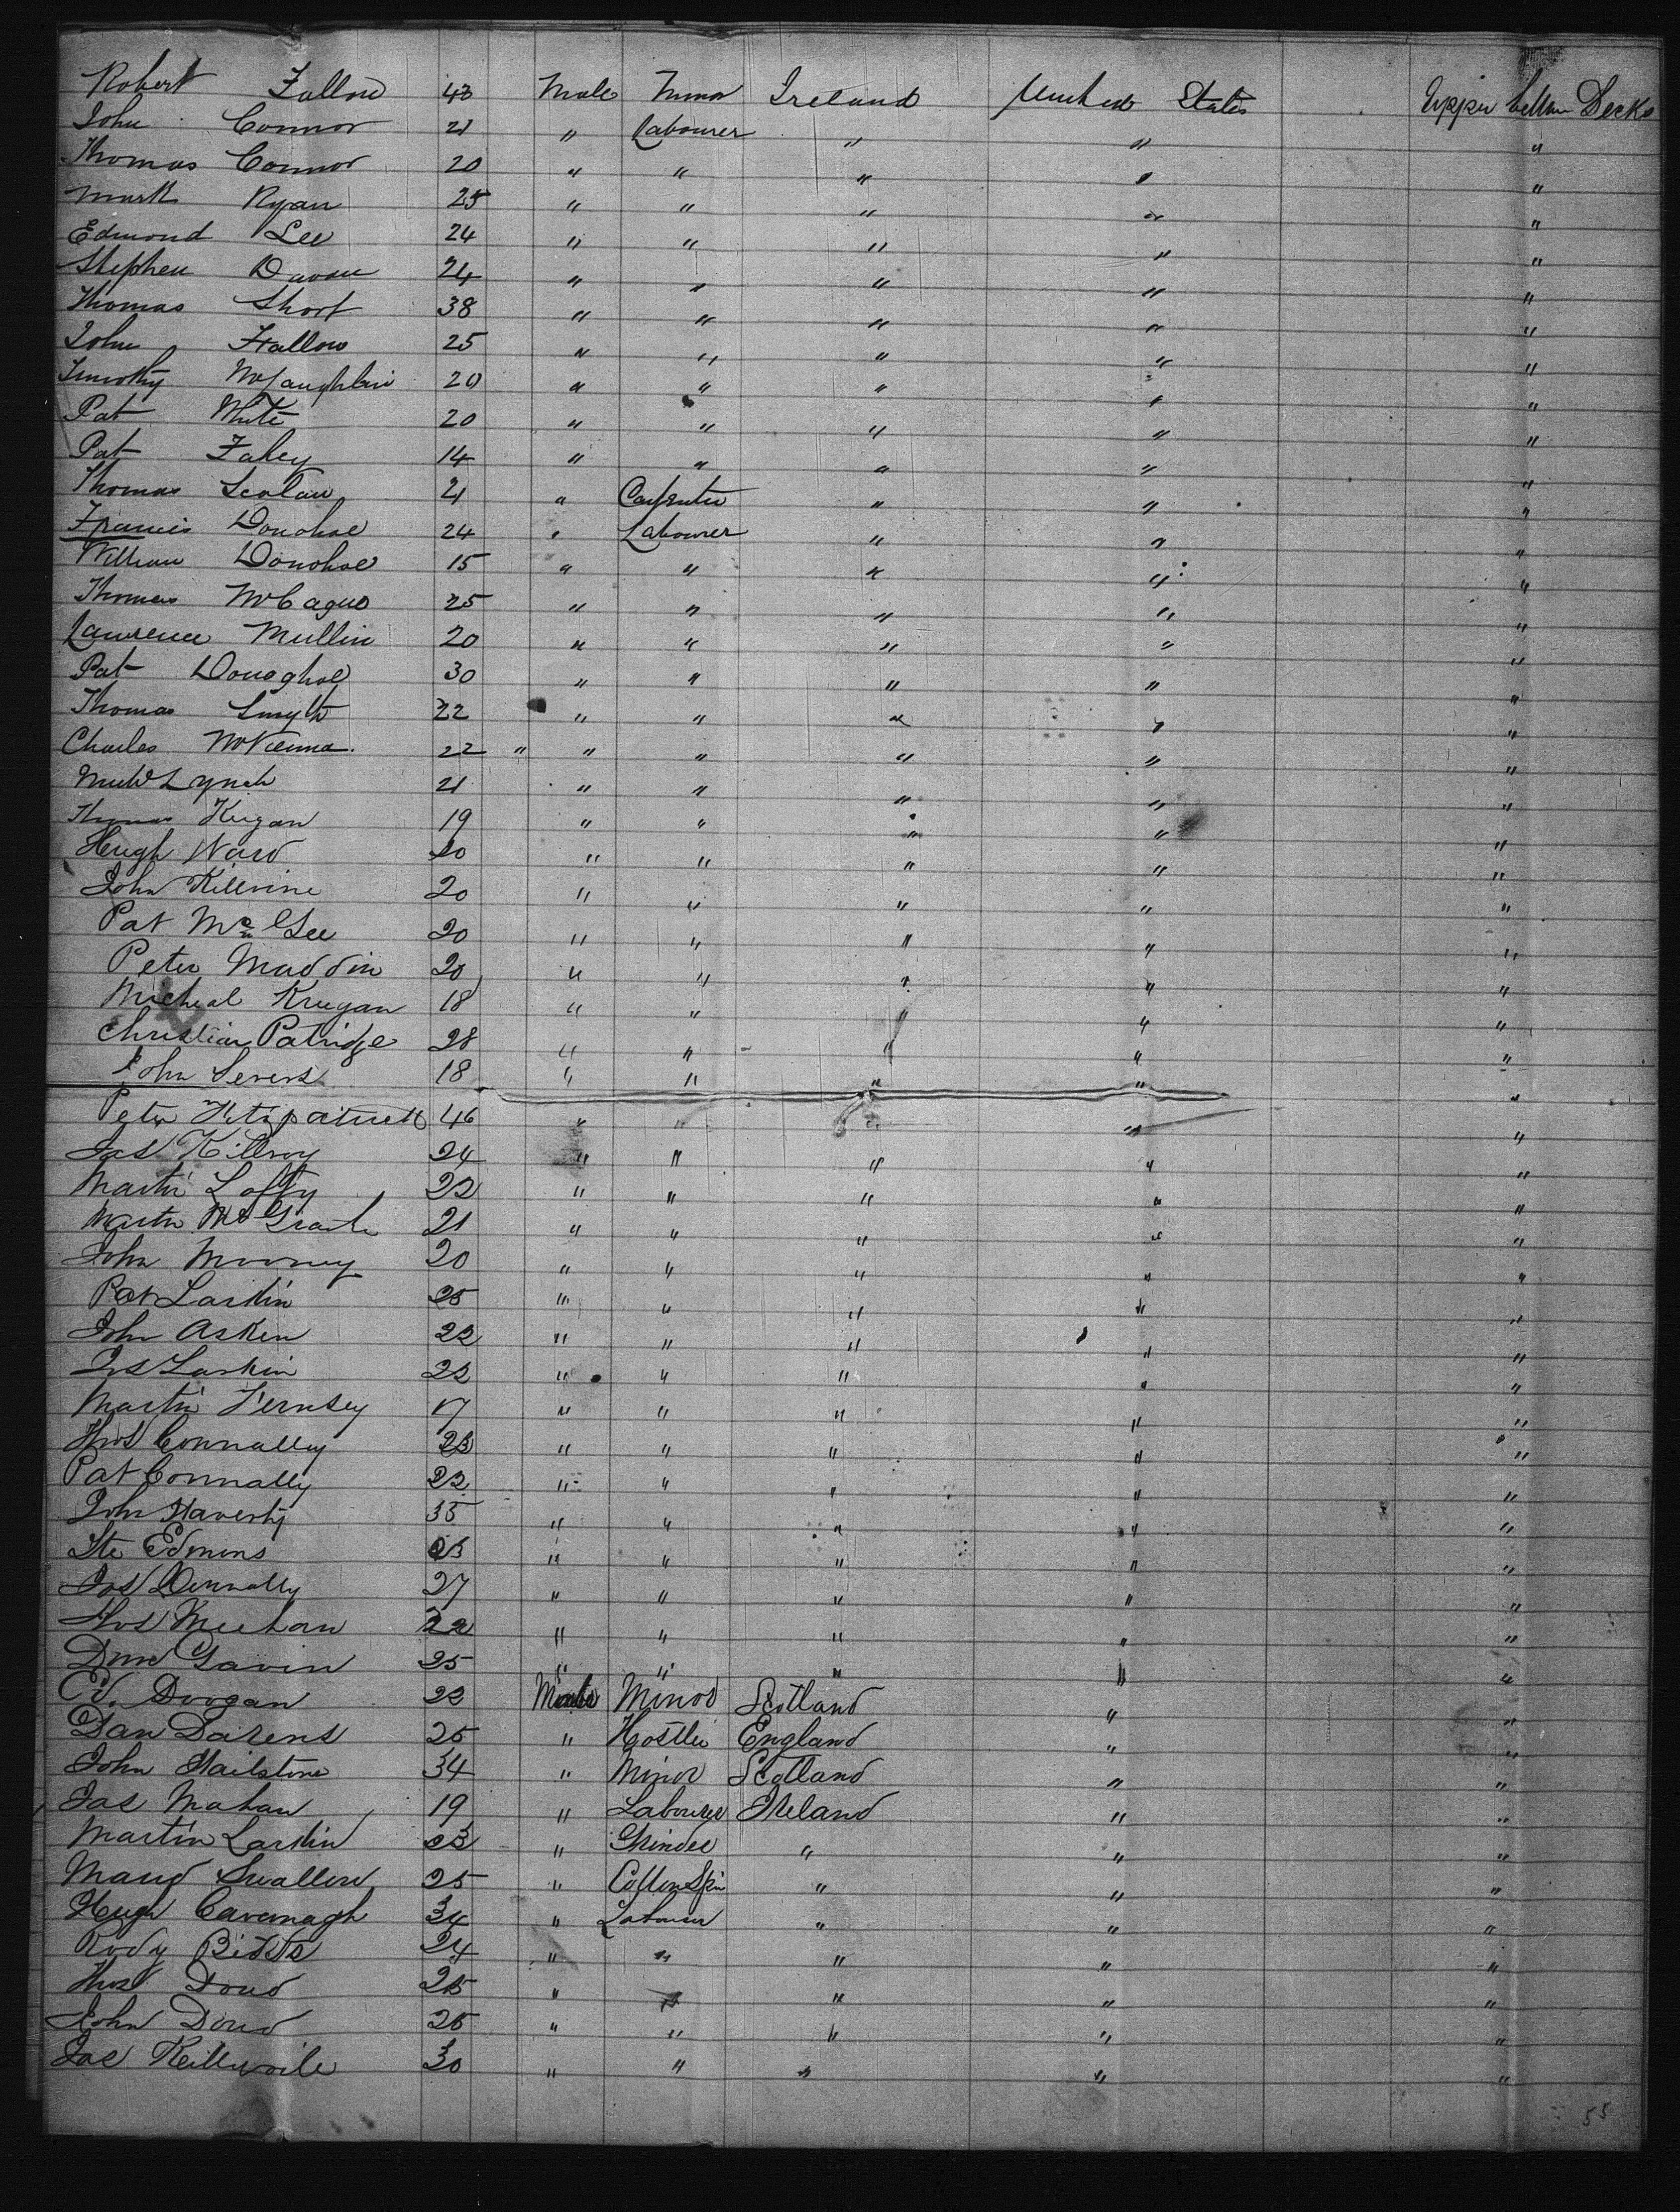 Robert Fallon 43 Male Minor Ireland United States Upper between Decks
John Connor 21 " Labourer " " "
Thomas Connor 20 " " " " "
Mark Ryan 25 " " " " "
Edmond Lee 24 " " " " "
Stephen 24 " " " " "
Thomas Short 38 " " " " "
John Fallow 25 " " " " "
Timothy McLaughlin 20 " " " " "
Pat White 20 " " " " "
Pat Fahey 14 " " " " "
Thomas Scolan 21 " Carpenter " " "
Francis Donohoe 24 " Labourer " " "
William Donohoe 15 " " " " "
Thomas McCague 25 " " " " "
Lawrence Mullin 20 " " " " "
Pat Donoghoe 30 " " " " "
Thomas Smyth 22 " " " " "
Charles McKenna 22 " " " " " "
Michl Lynch 21 " " " " "
Thomas Keegan 19 " " " " "
Hugh Ward 20 " " " " "
John Killrine 20 " " " " "
Pat McGee 20 " " " " "
Peter Maddin 20 " " " " "
Micheal Kreegan 18 " " " " "
Christian Patridge 28 " " " " "
John Severs 18 " " " " "
Peter Fitzpatrick 46 " " " " "
Jas Killroy 24 " " " " "
Martin Lofty 22 " " " " "
Martin McGrath 21 " " " " "
John Mooney 20 " " " " "
Pat Larkin 25 " " " " "
John Asken 22 " " " " "
Jos Larkin 22 " " " " "
Martin Fernsey 17 " " " " "
Thos Connally 23 " " " " "
Pat Connally 22 " " " " "
John Haverty 35 " " " " "
Ste Edmons 23 " " " " "
Jos Dennally 27 " " " " "
Thos Meehan 22 " " " " "
Gavin 25 " " " " "
Ed. Doogan 22 Male Minor Scotland " "
Dan Darens 25 " Hostler England " "
John Hailstone 34 " Minor Scotland " "
Jas Mahan 19 " Labourer Ireland " "
Martin Larkin 23 " Grinder " " "
Swallow 25 " Cotton Spin " " "
Hugh Cavanagh 34 " Labourer " " "
Rody 24 " " " " "
Thos Doud 25 " " " " "
John Doud 25 " " " " "
Jas 30 " " " " "
55